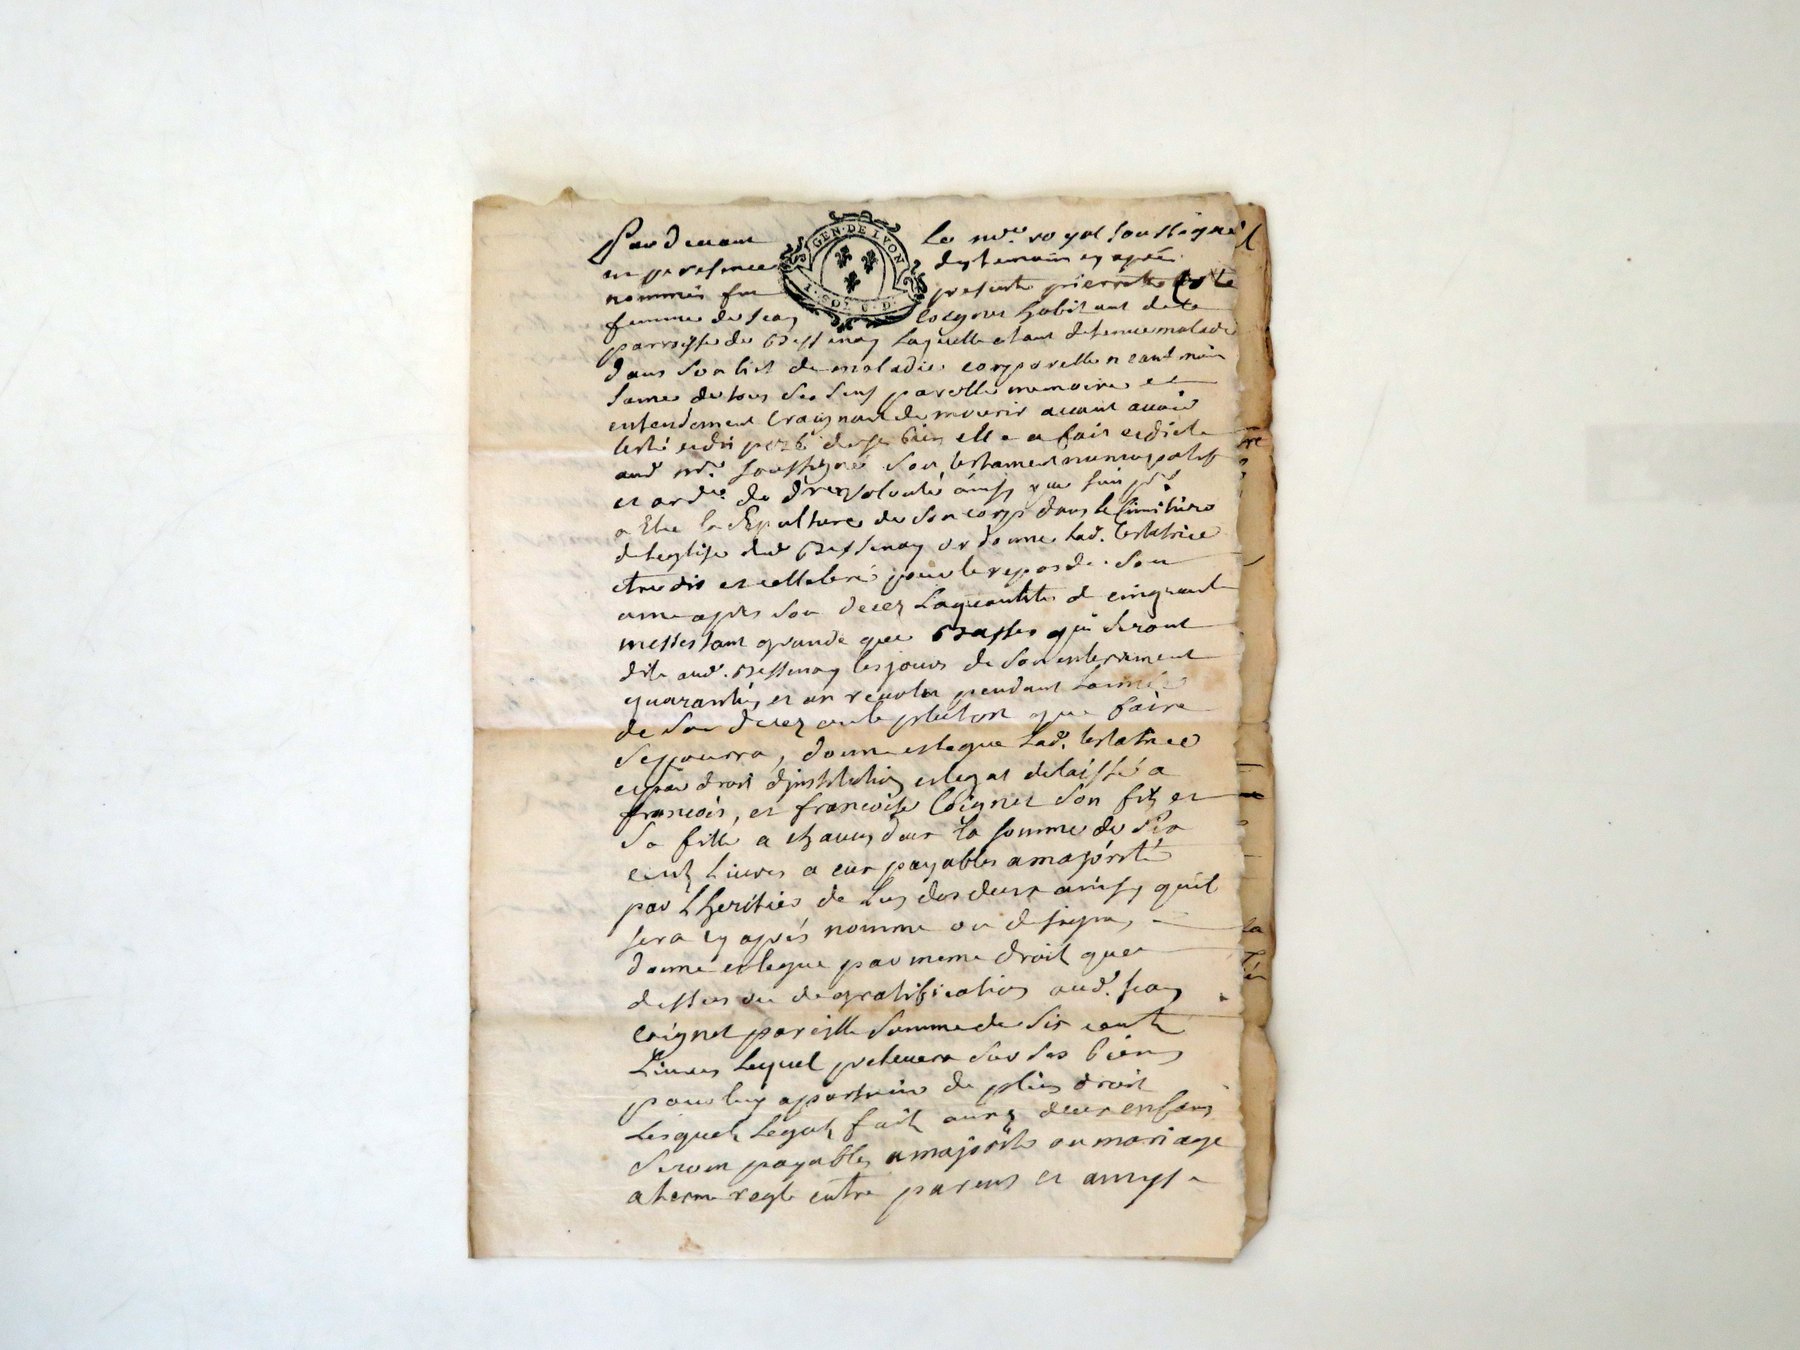 GEN · DE LYON
Pardevant le nore royal soussigné
en presence des temoins cy après
nommés fut presente pierrette
femme de Jean Coignet habitant de la
parroisse de Bessenay laquelle etant detenue malade
dans son lict de maladie corporelle neantmoins
saine de tous ses sens parolle memoire et
entendement craignant de mourir avant avoir
testé et disposé de ses biens elle a fait et dicté
aud nore soussigné son testament nuncupatif
et ordre de dre volonté ainsy que suit
a Elu la sepulture de son corps dans le simitiere
de leglise dud Bessenay ordonne lad. testatrice
etre dit et cellebré pour le repos de son
ame apres son decez la quantité de cinquante
messes tant grande que Basses qui seront
dite aud. Bessenay les jours de son enterrement
quarantin, et an revolu pendant lannée
de son decez ou le plutost que faire
se pourra, donne et legue lad. testatrice
et par droit dinstitution et legat delaissé a
francois, et francoise Coignet son fils et
sa fille a chacun deux la somme de six
cents Livres a eux payables a majorité
par Lheritier de lus des deux ainsy quil
sera cy après nommé ou designé,
donne et legue par meme droit que
dessus ou de gratification aud. Jean
coignet pareille somme de six cent
Livres lequel prelevera sur ses biens
pour luy apartenir de plein droit
Lesquels Legats fait auxd deux enfans
seront payables a majorité ou mariage
a terme reglé entre parens et amys